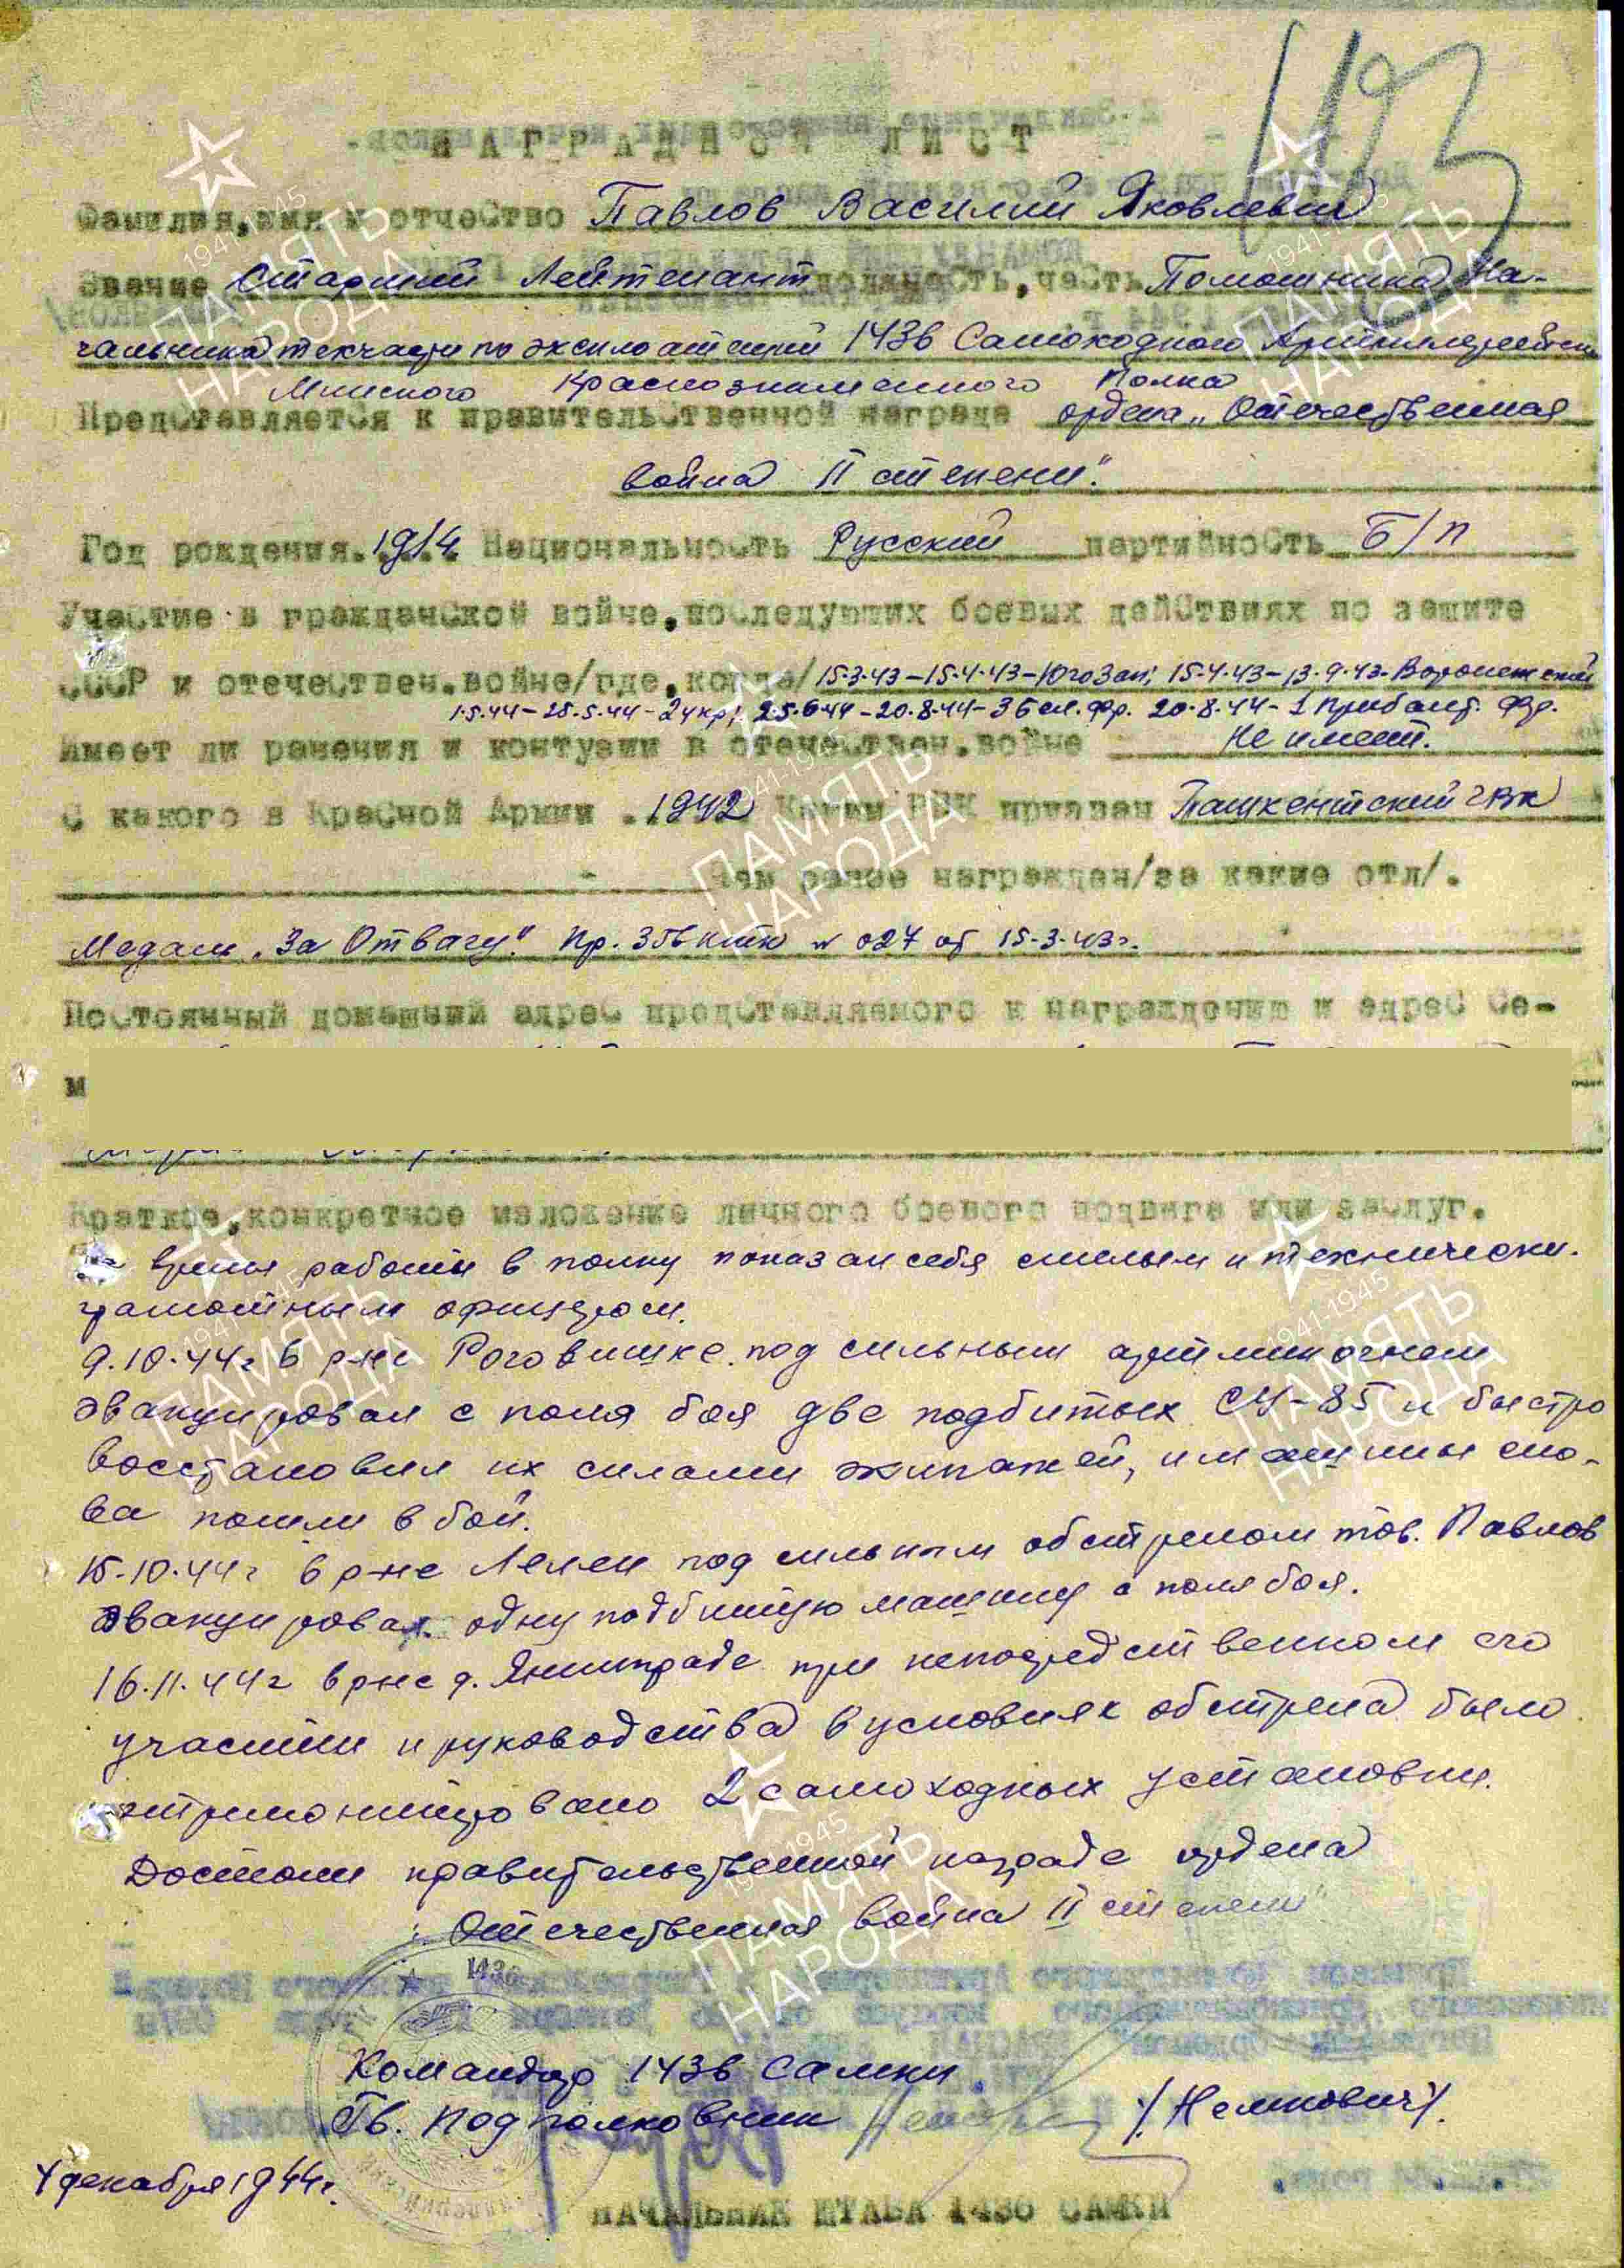 193
НАГРАДНОЙ ЛИСТ
Фамилия, имя и отчество Павлов Василий Яковлевич
Звание Старший Лейтенант должность, часть Помошника На-
чальника техчасти по эксплоатации 1436 Самоходного Артиллерийск
Минского Краснознаменного Полка
Представляется к правительственной награде ордена „Отечественная
война II степени".
Год рождения. 1914 Национальность Русский партийность Б/п
Участие в гражданской войне, последующих боевых действиях по защите
СССР и отечествен. войне/где, когда/ 15.3.43–15.4.43–Юго Зап; 15.4.43–13.9.43. Воронежский
1.5.44–25.5.44–2 укр; 25.6.44–20.8.44–3 бел. фр. 20.8.44–1 Прибалт. Фр.
Имеет ли ранения и контузии в отечествен. войне Не имеет.
С какого в Красной Армии. 1942 Каким РВК призван Ташкентский ГВК
Чем ранее награжден/за какие отл/.
Медаль „За Отвагу". Пр. 3 гв № 027 от 15-3-43г.
Постоянный домашний адрес представляемого к награждению и адрес се-
м
Краткое, конкретное изложение личного боевого подвига или заслуг.
время работы в полку показал себя смелым и технически.
грамотным офицером.
9.10.44г в р-не Роговишке. под сильным арт мин огнем
эвакуировал с поля боя две подбитых СУ-85 и быстро
восстановил их силами экипажей, и машины сно-
ва пошли в бой.
15.10.44г в р-не под сильным обстрелом тов. Павлов
эвакуировал одну подбитую машину с поля боя.
16.11.44г в р-не д. при непосредственном его
участии и руководства в условиях обстрела было
отремонтировано 2 самоходных установки.
Достоин правительственной награде ордена
„Отечественная война II степени"
1436
Командир 1436 Самкп
Гв. Подполковник /Немкович/.
4 декабря 1944г.
НАЧАЛЬНИК ШТАБА 1436 САМКП
1941-1945
ПАМЯТЬ
НАРОДА
1941-1945
ПАМЯТЬ
НАРОДА
1941-1945
ПАМЯТЬ
НАРОДА
1941-1945
ПАМЯТЬ
НАРОДА
1941-1945
ПАМЯТЬ
НАРОДА
1941-1945
ПАМЯТЬ
НАРОДА